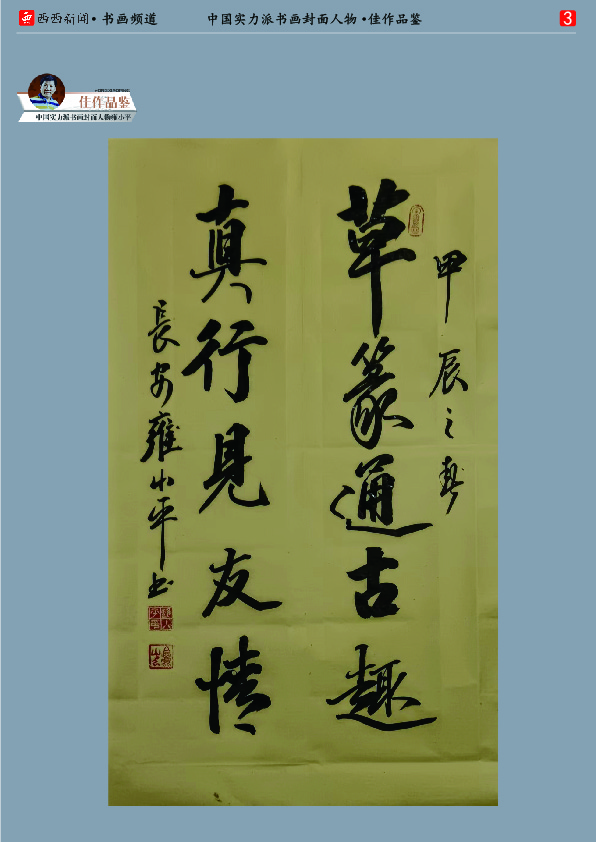 西 西西新闻·书画频道
中国实力派书画封面人物·佳作品鉴
3
佳作品鉴
中国实力派书画封面人物雍小平
甲辰之春
草篆通古趣
真行見友情
長安雍小平书